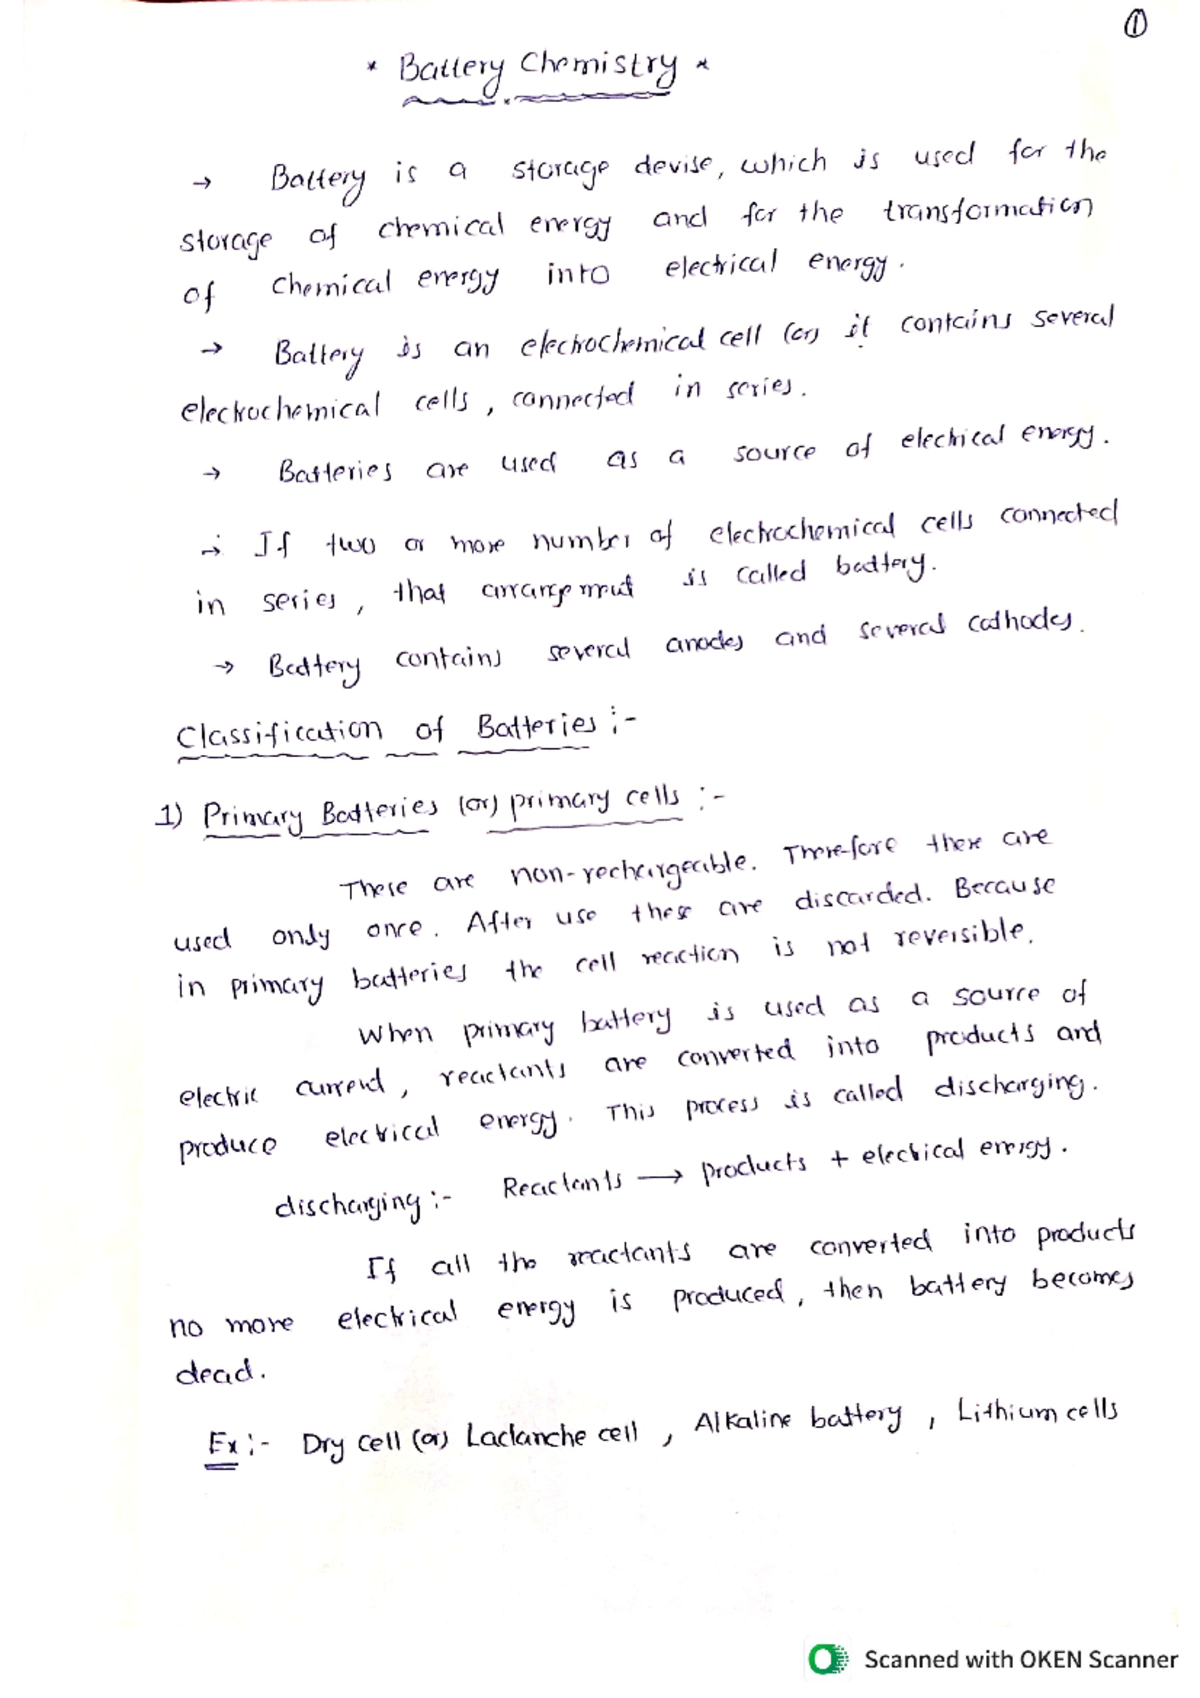 ①
* Battery Chemistry *
→ Battery is a storage devise, which is used for the
storage of chemical energy and for the transformation
of chemical energy into electrical energy.
→ Battery is an electrochemical cell (or) it contains several
electrochemical cells, connected in series.
→ Batteries are used as a source of electrical energy.
→ If two or more number of electrochemical cells connected
in series, that arrangement is called battery.
→ Battery contains several anodes and several cathodes.
Classification of Batteries :-
1) Primary Batteries (or) primary cells :-
These are non-rechargeable. Therefore there are
used only once. After use these are discarded. Because
in primary batteries the cell reaction is not reversible.
When primary battery is used as a source of
electric current, reactants are converted into products and
produce electrical energy. This process is called discharging.
discharging :- Reactants ⟶ products + electrical energy.
If all the reactants are converted into products
no more electrical energy is produced, then battery becomes
dead.
Ex :- Dry cell (or) Laclanche cell, Alkaline battery, Lithium cells
Scanned with OKEN Scanner